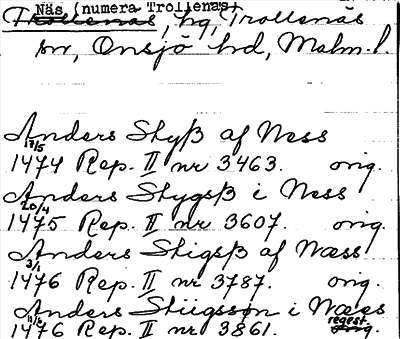 Näs (numera Trollenäs)
Trollenäs, hg, Trollenäs
sn, Onsjö hd, Malm. l.
Anders Styß af Ness
17/5
1474 Rep. II nr 3463. orig.
Anders Stygsß i Ness
20/4
1475 Rep. II nr 3607. orig.
Anders Stigsß af Næss
3/1
1476 Rep. II nr 3787. orig.
Anders Stiigsson i Næes
regest.
1476 Rep. II nr 3861. orig.